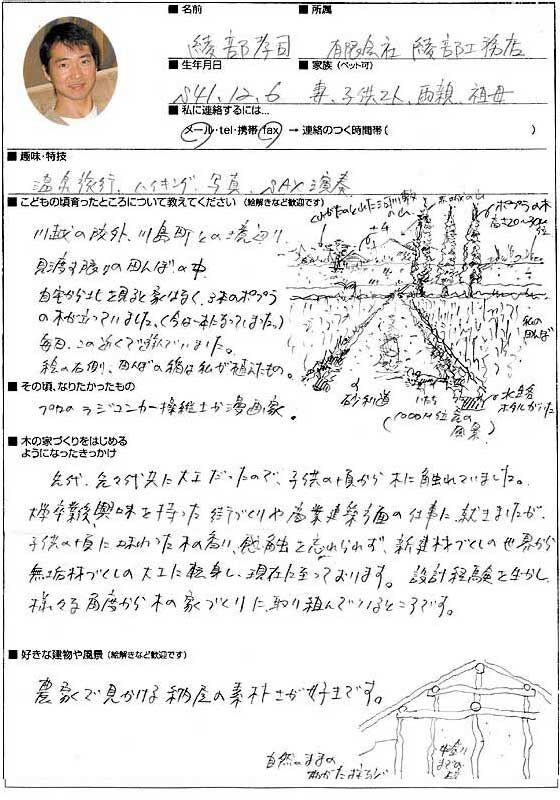 ■ 名前
■ 所属
綾部孝司
有限会社 綾部工務店
■ 生年月日
■ 家族 (ペット可)
S41.12.6
妻、子供2人、両親、祖母
■ 私に連絡するには…
メール・tel・携帯・fax → 連絡のつく時間帯 ( )
■ 趣味・特技
温泉旅行、ハイキング、写真、SAX演奏
■ こどもの頃育ったところについて教えてください (絵解きなど歓迎です)
川越の郊外、川島町との境辺り
見渡す限りの田んぼの中
自宅から北を見ると家はなく、3本のポプラ
の木が立っていました。(今は一本になっていました。)
毎日、この近くで遊んでいました。
絵の右側、田んぼの稲は私が植えたもの。
ポプラの木
高さ20〜30m位
私の田んぼ
砂利道
いたち
水路
ホタルがいた
(1000M位先の風景)
■ その頃、なりたかったもの
プロのラジコンカー操縦士か漫画家。
■ 木の家づくりをはじめる
ようになったきっかけ
先代、先々代共に大工だったので、子供の頃から木に触れていました。
大学卒業後、興味を持った街づくりや商業建築方面の仕事に就きましたが、
子供の頃に味わった木の香り、感触を忘れられず、新建材づくしの世界から
無垢材づくしの大工に転身し、現在に至っております。設計経験を生かし、
様々な角度から木の家づくりに取り組んでいるところです。
■ 好きな建物や風景 (絵解きなど歓迎です)
農家で見かける納屋の素朴さが好きです。
自然のままの